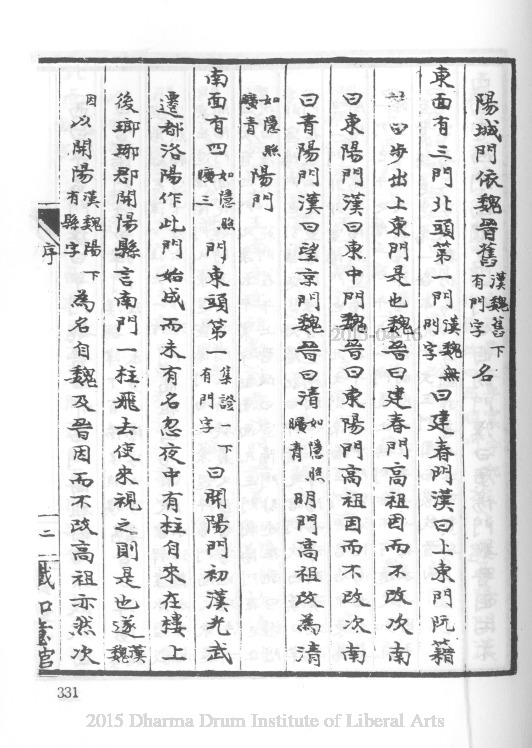 陽城門依魏晉舊漢魏舊下有門字名
東面有三門北頭第一門漢魏無門字曰建春門漢曰上東門阮籍
詩曰步出上東門是也魏晉曰建春門高祖因而不改次南
曰東陽門漢曰東中門魏晉曰東陽門高祖因而不改次南
曰青陽門漢曰望京門魏晉曰清如隱照曠青明門高祖改為清
如隱照曠青陽門
南面有四如隱照曠三門東頭第一集證一下有門字曰開陽門初漢光武
遷都洛陽作此門始成而未有名忽夜中有柱自來在樓上
後瑯琊郡開陽縣言南門一柱飛去使來視之則是也遂漢魏
因以開陽漢魏陽下有縣字為名自魏及晉因而不改高祖亦然次
序
二
331
2015 Dharma Drum Institute of Liberal Arts